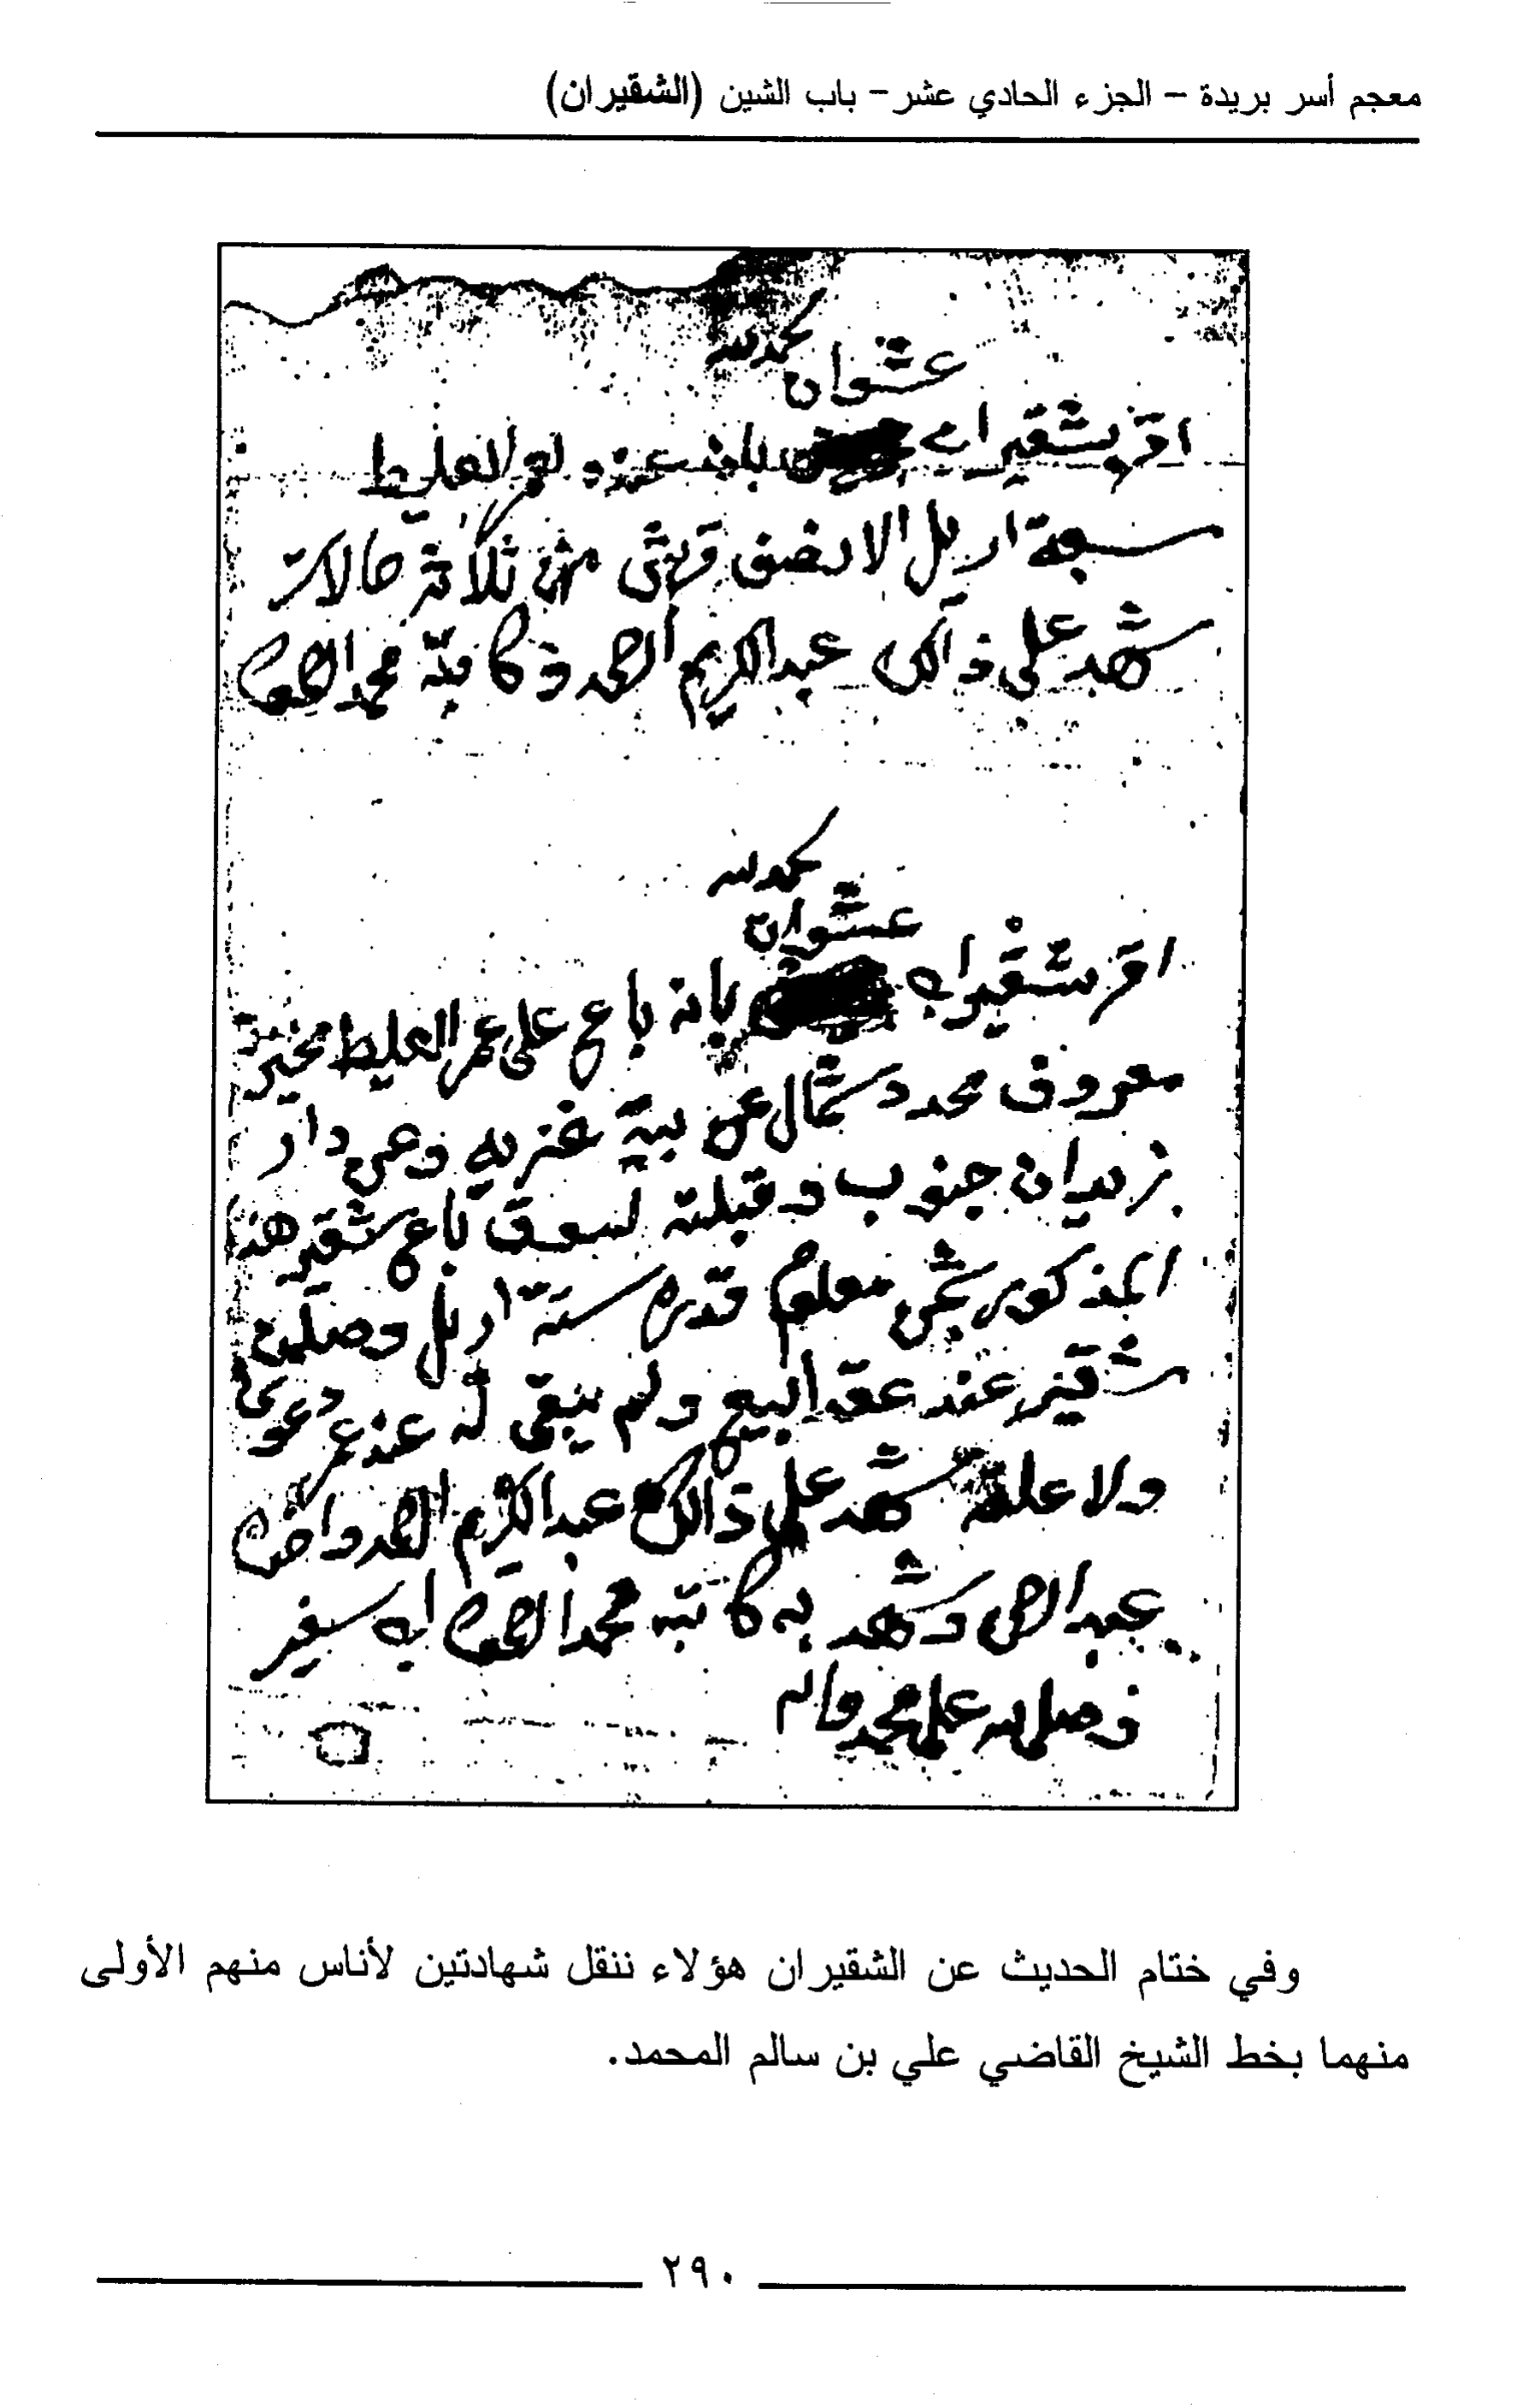 معجم أسر بريدة – الجزء الحادي عشر – باب الشين (الشقيران)
الحمد لله
عشوان
اقر شقير ابن بان عنده لعمر العليط
سبعة اريل الا نصف قرش ثمن ثلاثة
شهد على ذالك عبدالكريم الحمد وكاتبه محمد
الحمد لله
عشوان
اقر شقير ابن بانه باع على عمر العليط
معروف محدد شمال عن بيت وعن دار
زيدان جنوب وقبلته لسوق باع شقير هذا
المذكور بثمن معلوم قدره ستة اريل وصلن
شقير عند عقد البيع ولم يبقى له عند عمر دعوى
ولا علقه شهد على ذالك عبدالكريم الحمد
وشهد به كاتبه محمد ابن سيف
وصلى الله على محمد واله
وفي ختام الحديث عن الشقيران هؤلاء ننقل شهادتين لأناس منهم الأولى
منهما بخط الشيخ القاضي علي بن سالم المحمد.
٢٩٠